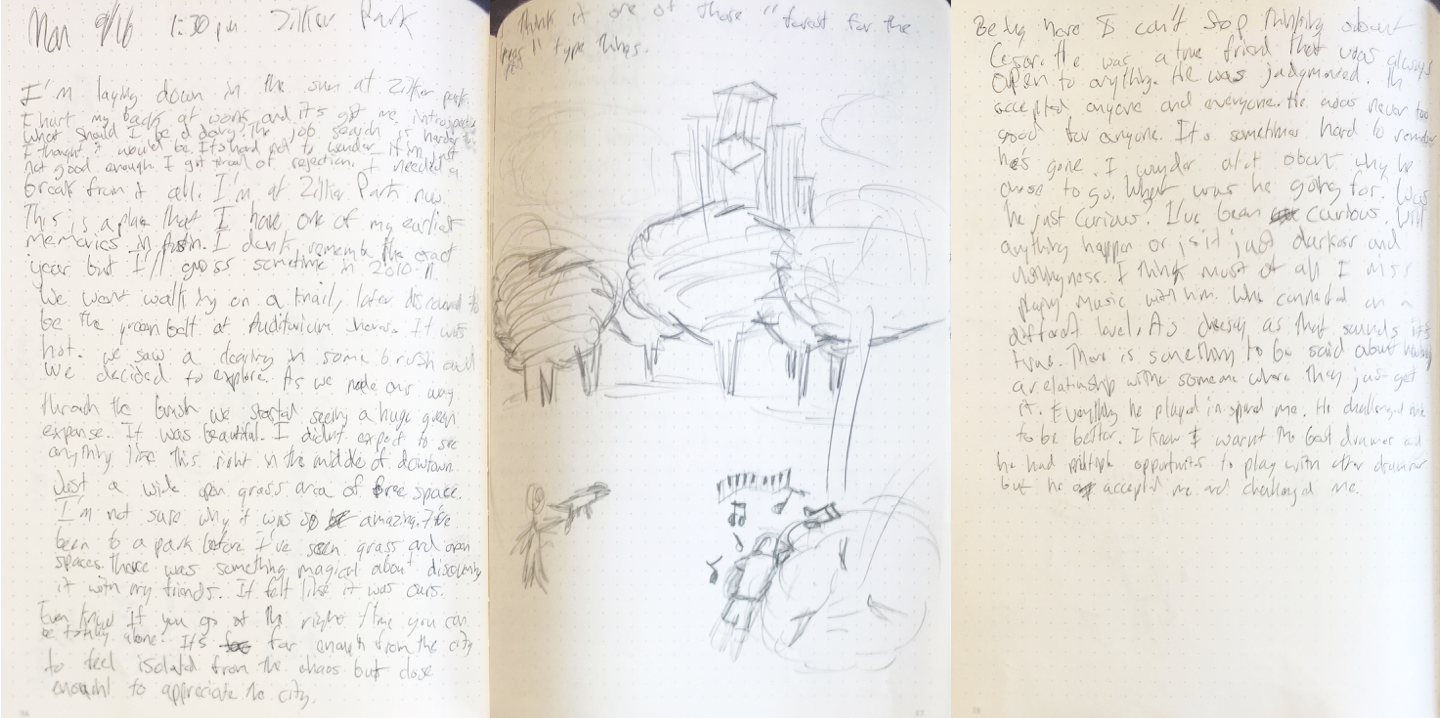 Mon 9/16 1:30 pm Zilker Park
I'm laying down in the sun at Zilker park.
I hurt my back at work and it's got me introspective
what should I be doing? The job search is harder
I thought it would be. It's hard not to wonder if I'm just
not good enough. I got tired of rejection. I needed a
break from it all. I'm at Zilker Park now.
This is a place that I have one of my earliest
memories in Austin. I dont remember the exact
year but I'll guess sometime in 2010-11
We went walking on a trail, later discovered to
be the green belt at Auditorium shores. It was
hot. we saw a clearing in some brush and
we decided to explore. As we made our way
through the brush we started seeing a huge green
expanse. It was beautiful. I didn't expect to see
anything like this right in the middle of dowtown.
Just a wide open grass area of free space.
I'm not sure why it was so amazing. I've
been to a park before I've seen grass and open
spaces. There was something magical about discovering
it with my friends. It felt like it was ours.
Even know if you go at the right time you can
be totally alone. It's far enough from the city
to feel isolated from the chaos but close
enough to appreciate the city.
Think it one of those "forest for the
trees" type things.
Being here I can't stop thinking about
Cesar. He was a true friend that was always
open to anything. He was He
accepted anyone and everyone. He was never too
good for anyone. It's sometimes hard to remember
he's gone. I wonder alot about why he
chose to go. What was he going for. Was
he just curious? I've been curious. Will
anything happen or is it just darkness and
I think most of all I miss
playing music with him. We connected on a
different level. As cheesy as that sounds it's
true. There is something to be said about having
a relationship with someone where they just get
it. Everything he played inspired me. He challenged me
to be better. I knew I wasnt the best drummer and
he had multiple opportunities to play with other drummers
but he accepted me and challenged me.